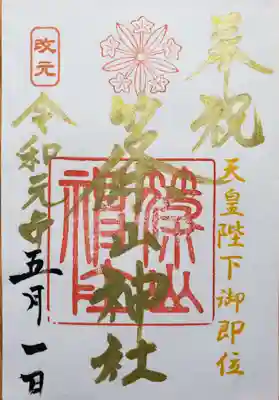 奉祝
天皇陛下御即位
篠山神社
篠山
神社
改元
令和元年五月一日